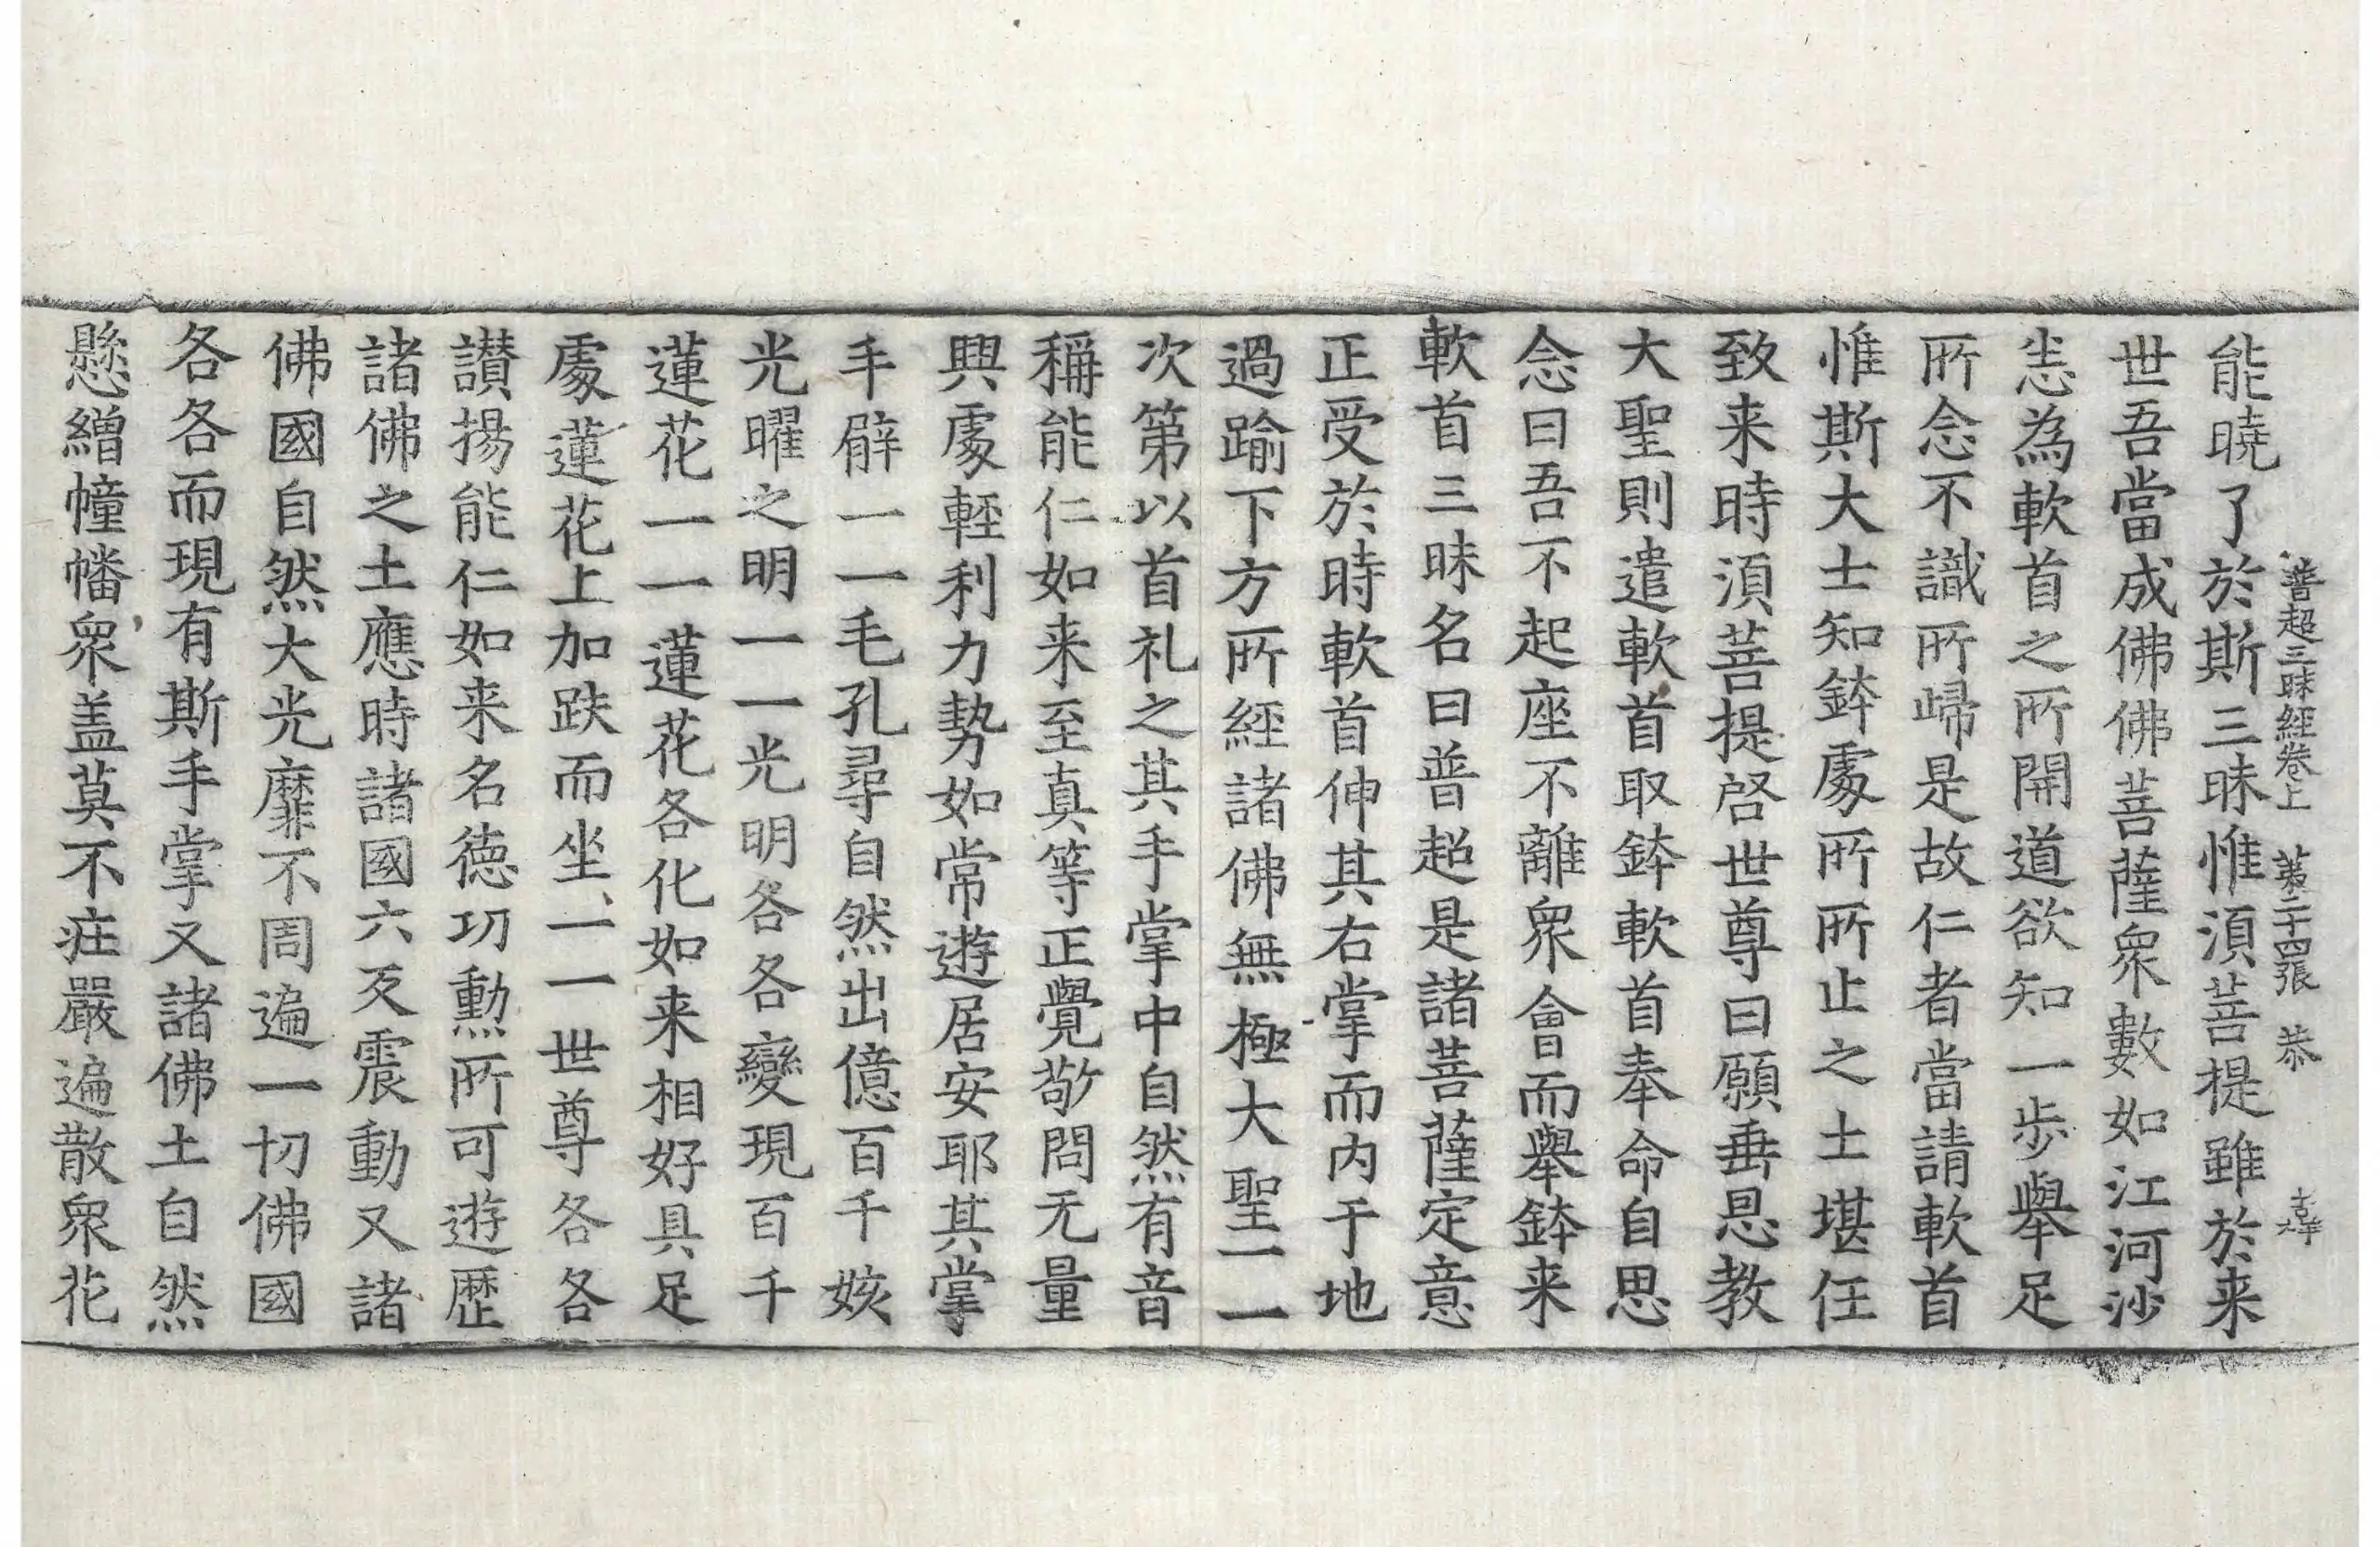 普超三昧經卷上 第二十四張 恭
能曉了於斯三昧惟湏菩提雖於来
世吾當成佛佛菩薩衆數如江河沙
恚為軟首之所開道欲知一步舉足
所念不識所歸是故仁者當請軟首
惟斯大士知鉢處所所止之土堪任
致来時湏菩提啓世尊曰願垂恩教
大聖則遣軟首取鉢軟首奉命自思
念曰吾不起座不離衆會而舉鉢来
軟首三昧名曰普超是諸菩薩定意
正受於時軟首伸其右掌而内于地
過踰下方所經諸佛無極大聖一一
次第以首礼之其手掌中自然有音
稱能仁如来至真等正覺敬問无量
興處輕利力勢如常遊居安耶其掌
手臂一一毛孔尋自然出億百千姟
光曜之明一一光明各各變現百千
蓮花一一蓮花各化如来相好具足
處蓮花上加趺而坐一一世尊各各
讃揚能仁如来名德功勲所可遊歴
諸佛之土應時諸國六反震動又諸
佛國自然大光靡不周遍一切佛國
各各而現有斯手掌又諸佛土自然
懸繒幢幡衆盖莫不莊嚴遍散衆花